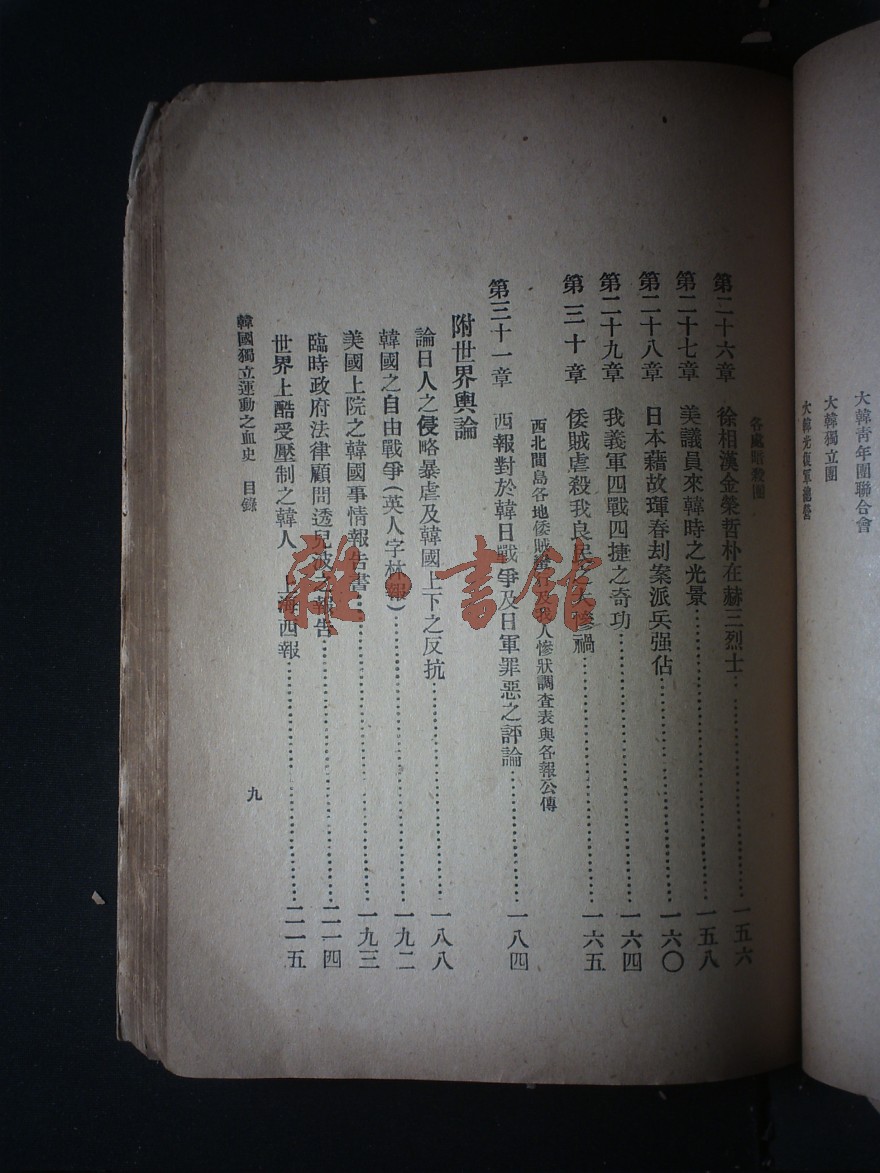 大韓靑年團聯合會
大韓獨立團
大韓光復軍總營
各處暗殺團
第二十六章 徐相漢金榮哲朴在赫三烈士……一五六
第二十七章 美議員來韓時之光景……一五八
第二十八章 日本藉故琿春刦案派兵强佔……一六〇
第二十九章 我義軍四戰四捷之奇功……一六四
第三十章 倭賊虐殺我良民之大慘禍……一六五
西北間島各地倭賊蠻行及我人慘狀調查表與各報公傳
第三十一章 西報對於韓日戰爭及日軍罪惡之評論……一八四
附世界輿論
論日人之侵略暴虐及韓國上下之反抗……一八八
韓國之自由戰爭(英人字林報)……一九二
美國上院之韓國事情報告書……一九三
臨時政府法律顧問透兒波之報告……二一四
世界上酷受壓制之韓人 上海西報……二一五
韓國獨立運動之血史 目錄
九
雜·書館